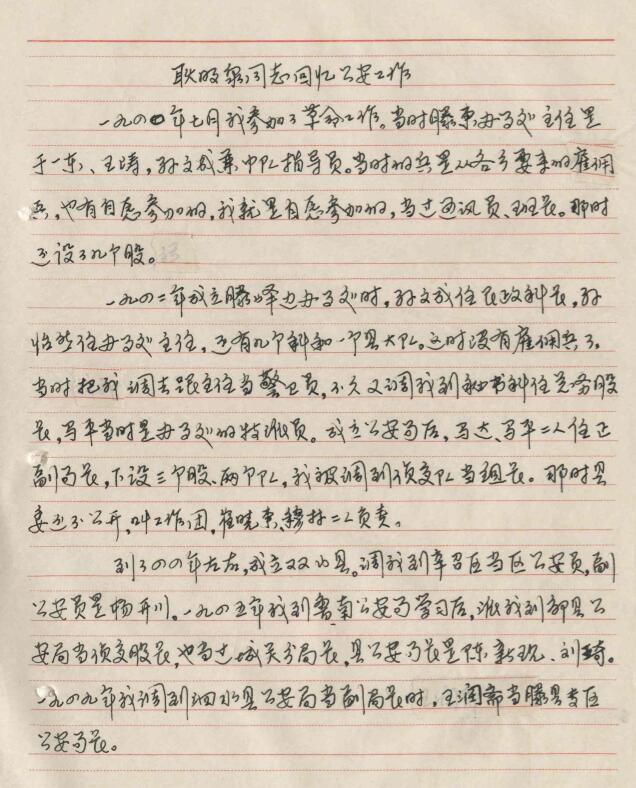 耿晓泉同志回忆公安工作
一九四〇年七月我参加了革命工作。当时滕东办事处主任是
于一东、王涛，孙文成兼中队指导员。当时的兵是从各乡要来的雇佣
兵，也有自愿参加的，我就是自愿参加的，当过通讯员、班长。那时
还设了几个股。
一九四二年成立滕峄边办事处时，孙文成任民政科长，孙
怡然任办事处主任，还有几个科和一个县大队。这时没有雇佣兵了。
当时把我调去跟主任当警卫员，不久又调我到秘书科任总务股
长，马华当时是办事处的特派员。成立公安局后，马达、马华二人任正
副局长，下设三个股、两个队，我被调到侦察队当组长。那时县
委还不公开，叫工作团，崔晓东、穆林二人负责。
到了四四年左右，成立双山县。调我到辛召区当区公安员，副
公安员是杨开川。一九四五年我到鲁南公安局学习后，派我到邹县公
安局当侦察股长，也当过城关分局长，县公安局长是陈新、刘琦。
一九四九年我调到泗水县公安局当副局长时，王润斋当滕县专区
公安局长。